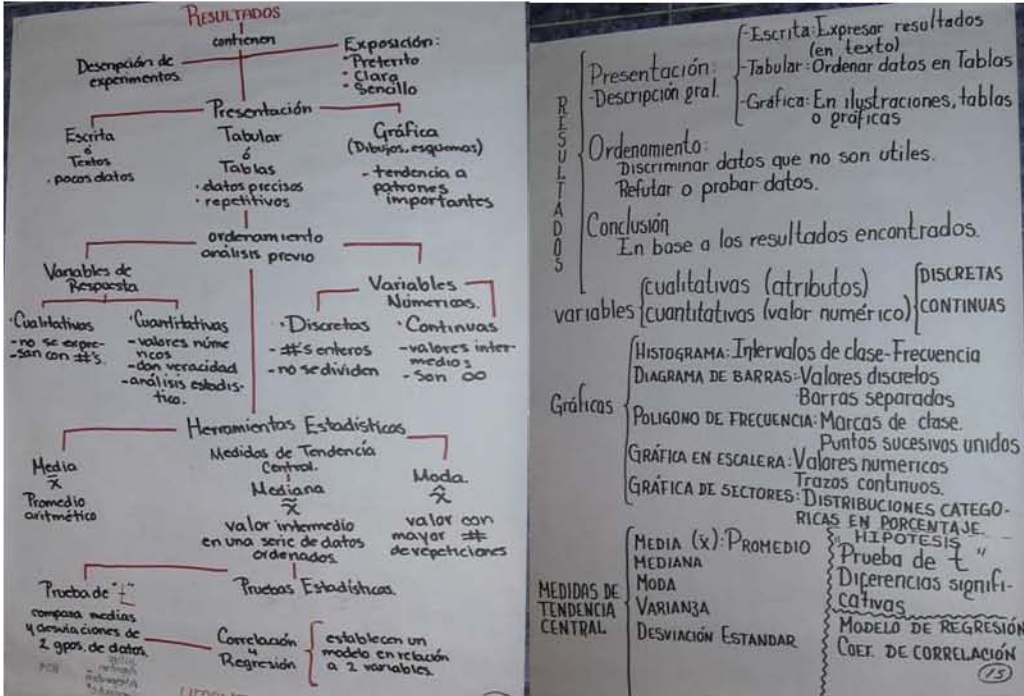 RESULTADOS
contienen
Descripción de
experimentos.
Exposición:
• Preterito
• Clara
• Sencillo
Presentación
Escrita
ó
Textos
• pocos datos
Tabular
ó
Tablas
• datos precisos
• repetitivos
Gráfica
(Dibujos, esquemas)
- tendencia a
patrones
importantes
ordenamiento
análisis previo
Variables de
Respuesta
• Cualitativas
- no se expre-
- san con #'s.
• Cuantitativas
- valores núme
ricos
- dan veracidad
- análisis estadís-
tico.
Variables
Númericas.
• Discretas
- #'s enteros
- no se dividen
• Continuas
- valores inter-
medios
- Son ∞
Herramientas Estadísticas
Media
x̄
Promedio
aritmético
Medidas de Tendencia
Central.
Mediana
x̃
valor intermedio
en una serie de datos
ordenados
Moda.
x̂
valor con
mayor #
de repeticiones
Pruebas Estadísticas.
Prueba de "t"
compara medias
y desviaciones de
2 gpos. de datos.
Correlación
y
Regresión
establecen un
modelo en relación
a 2 variables.
RESULTADOS
Presentación:
- Descripción gral.
- Escrita: Expresar resultados
(en texto)
- Tabular: Ordenar datos en Tablas
- Gráfica: En ilustraciones, tablas
o gráficas
Ordenamiento:
Discriminar datos que no son utiles.
Refutar o probar datos.
Conclusión
En base a los resultados encontrados.
variables
cualitativas (atributos)
cuantitativas (valor numérico)
DISCRETAS
CONTINUAS
Gráficas
HISTOGRAMA: Intervalos de clase-Frecuencia
DIAGRAMA DE BARRAS: Valores discretos
Barras separadas
POLIGONO DE FRECUENCIA: Marcas de clase.
Puntos sucesivos unidos
GRÁFICA EN ESCALERA: Valores numericos
Trazos continuos.
GRÁFICA DE SECTORES: DISTRIBUCIONES CATEGO-
RICAS EN PORCENTAJE.
MEDIDAS DE
TENDENCIA
CENTRAL
MEDIA (x): PROMEDIO
MEDIANA
MODA
VARIANZA
DESVIACIÓN ESTANDAR
HIPOTESIS
Prueba de "t"
Diferencias signifi-
cativas
MODELO DE REGRESIÓN
COEF. DE CORRELACIÓN
15